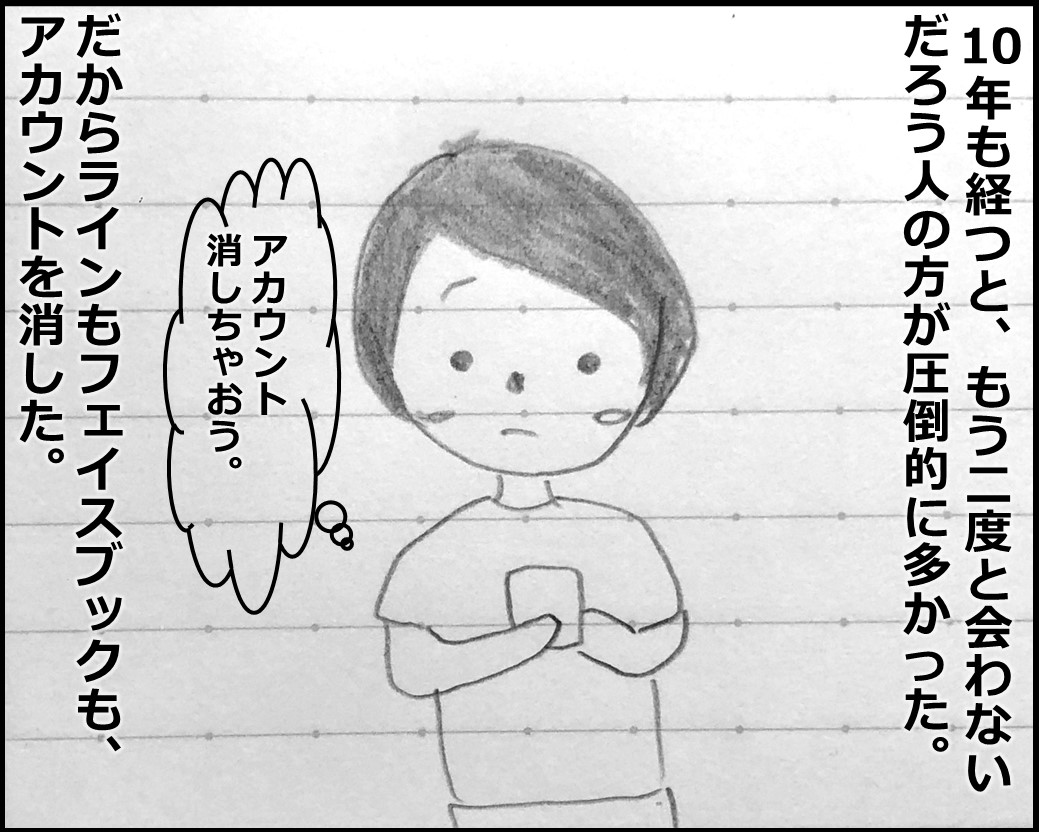 10年も経つと、もう二度と会わない
だろう人の方が圧倒的に多かった。
アカウント
消しちゃおう。
だからラインもフェイスブックも、
アカウントを消した。